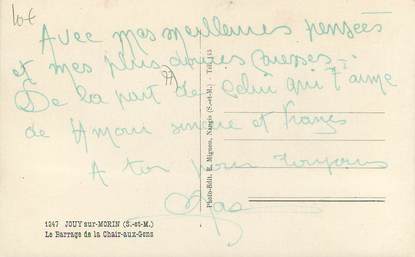 10€
Avec mes meilleures pensées
et mes plus douces caresses.
De la part de celui qui t'aime
de Amour sincère et franc
A toi pour toujours
Photo-Edit. R. Mignon, Nangis (S.-et-M.) - Tél. 113
1247 JOUY sur-MORIN (S.-et-M.)
Le Barrage de la Chair-aux-Gens